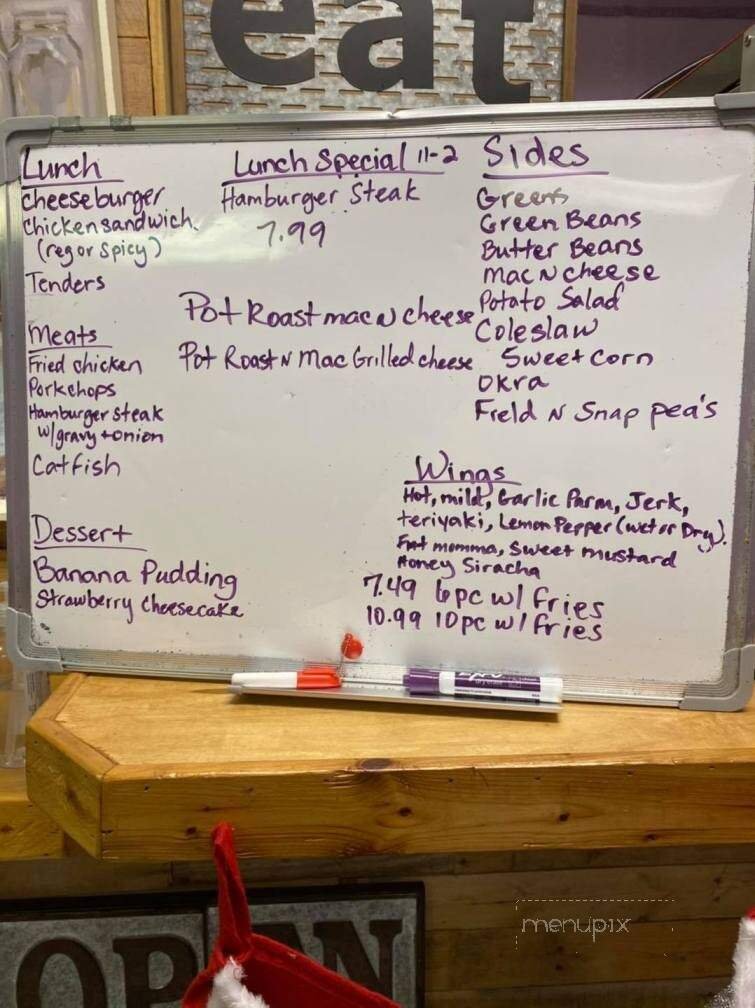 eat
Lunch
cheeseburger
chicken sandwich
(reg or spicy)
Tenders
Meats
Fried chicken
Porkchops
Hamburger steak
w/gravy + onion
Catfish
Dessert
Banana Pudding
Strawberry Cheesecake
Lunch Special 11-2
Hamburger Steak
7.99
Pot Roast mac N cheese
Pot Roast N Mac Grilled cheese
Sides
Greens
Green Beans
Butter Beans
Mac N cheese
Potato Salad
Coleslaw
Sweet corn
Okra
Field N Snap pea's
Wings
Hot, mild, Garlic Parm, Jerk,
teriyaki, Lemon Pepper (wet or Dry).
Fat momma, Sweet mustard
Honey Siracha
7.49 6pc w/ Fries
10.99 10pc w/ Fries
EXPO
OPEN
menupix